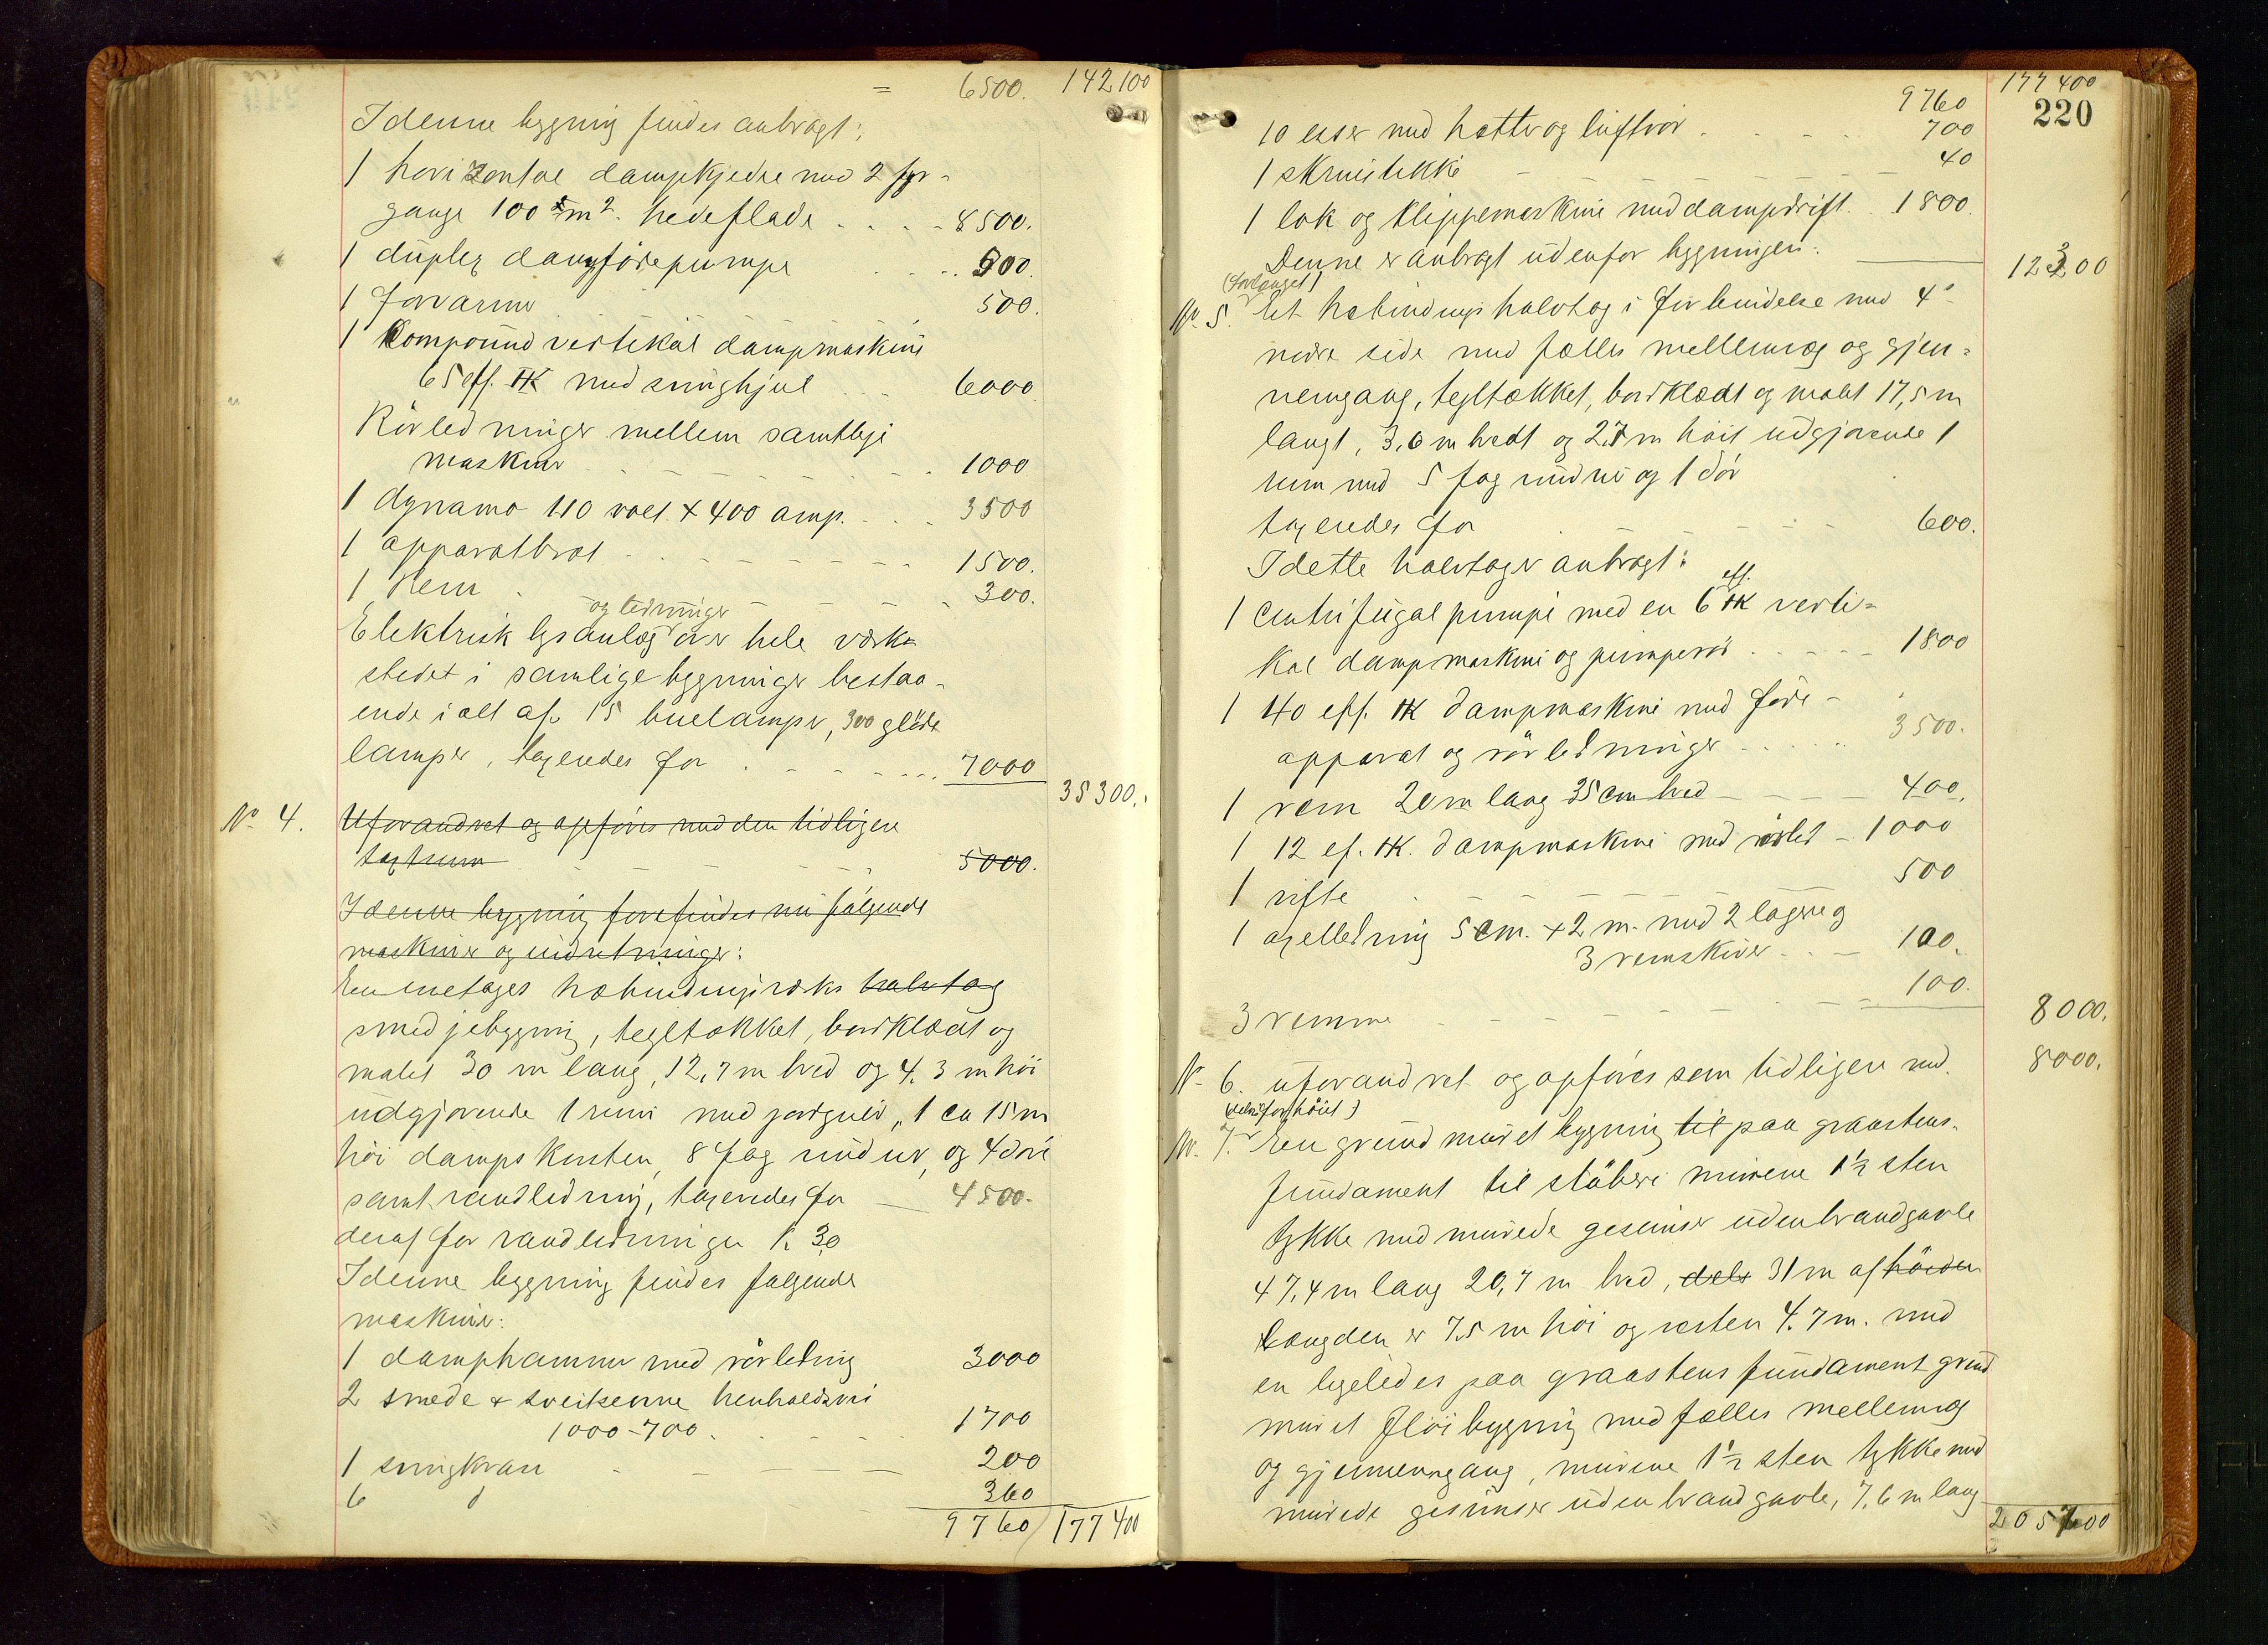 = 6500. 142100
I denne bygning findes anbragt:
1 horizontal dampkjedel med 2 fyr-
gange 100 m². hedeflade . . . . 8500.
1 duplex dampfödepumpe . . . . 500.
1 forvarmer 500.
1 Compound vertikal dampmaskine
65 eff. HK med svinghjul . . 6000.
Rörledninger mellem samtlige
maskiner . - - - . 1000
1 dynamo 110 volt. + 400 amp. . . . 3500
1 apparatbræt . . - - - - - - 1500.
1 Rem . - - - - 300.
og ledninger
Elektrisk lysanlæg over hele værk-
stedet i samlige bygninger bestaa-
ende i alt af 15 buelamper, 300 gløde
lamper, taxeredes for . - - - - ... 7000
35300.
No 4. Uforandret og opföres med den tidligere
taxtsum - - - - 5000.
I denne bygning forefindes nu fölgende
maskiner og indretninger:
En enetages halvbindingsværks halvtag
smedjebygning, tegltækket, bordklædt og
malet 30 m lang, 12,7 m bred og 4.3 m höi
udgjörende 1 rum med jordgulv, 1 ca 15 m
höi dampskorsten, 8 fag vinduer, og 4 döre
samt vandledning, taxeredes for — 4500.
deraf for vandledningen K 30
I denne bygning findes følgende
maskiner:
1 damphammer med rörledning 3000
2 smede & sveiseovne henholdsvis
1000-700 . . - - . 1700
1 svingkran - — — — 200
6 d 360
9760 177400
177400
9760 220
10 esser med hætter og luftrör . - - - . 700
1 skruestikke - - - - - 40
1 lok og klippemaskine med dampdrift. . 1800.
Denne er anbragt udenfor bygningen. — 12300
(forlænget)
No 5. Et halvbindings halvtag i forbindelse med 4s
nedre side med fælles mellemvæg og gjen-
nemgang, tegltækket, bordklædt og malet 17,5 m
langt, 3,6 m bredt og 2,7 m höit udgjørende 1
rum med 5 fag vinduer og 1 dör
taxeredes for - - - - - - 600.
I dette halvtag er anbragt:
eff.
1 centrifugal pumpe med en 6 HK verti-
kal dampmaskine og pumperör . . - - - 1800
1 40 eff. HK dampmaskine med föde-
apparat og rörledninger . . . . . 3500.
1 rem 20 m lang 35 cm bred - - - — 400.
1 12 ef. HK. dampmaskine med rörled - 1000
1 vifte . - - - - - 500
1 axelledning 5 cm. + 2 m. med 2 lagere og
3 remskiver . . — 100.
3 remme - - - - - - 100.
8000.
No 6. uforandret og opföres som tidligere med. 8000.
(delvis forhöiet)
No. 7. En grundmuret bygning til paa graastens-
fundament til stöberi murene 1½ sten
tykke med murede gesimser uden brandgavle
47,4 m lang 20,7 m bred, dels 31 m af höiden
længden er 7.5 m höi og resten 4.7 m. med
en ligeledes paa graastens fundament grund
muret flöibygning med fælles mellemvæg
og gjennemgang, murene 1½ sten tykke med
murede gesimser uden brandgavle, 7,6 m lang
205700